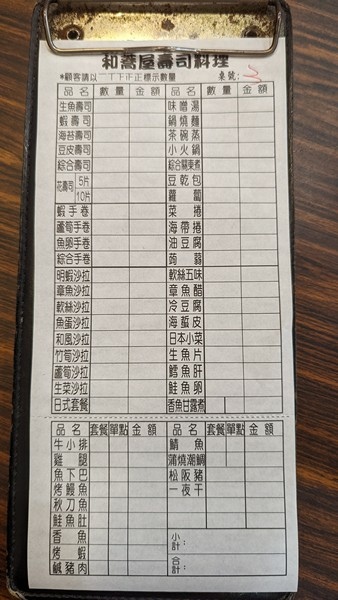 和喬屋壽司料理
*顧客請以一丁下正正標示數量 桌號:3
品名 數量 金額 品名 數量 金額
生魚壽司 味噌湯
蝦壽司 鍋燒麵
海苔壽司 茶碗蒸
豆皮壽司 小火鍋
綜合壽司 綜合關東煮
花壽司 5片 豆乾包
10片 蘿蔔
蝦手卷 菜捲
蘆筍手卷 海帶捲
魚卵手卷 油豆腐
綜合手卷 蒟蒻
明蝦沙拉 軟絲五味
章魚沙拉 章魚醋
軟絲沙拉 冷豆腐
魚蛋沙拉 海蜇皮
和風沙拉 日本小菜
竹筍沙拉 生魚片
蘆筍沙拉 鱈魚肝
生菜沙拉 鮭魚卵
日式套餐 香魚甘露煮
品名 套餐 單點 金額 品名 套餐 單點 金額
牛小排 鯖魚
雞腿 蒲燒潮鯛
魚下巴 松阪豬
烤鰻魚 一夜干
秋刀魚
鮭魚肚
香魚 小計:
烤蝦
鹹豬肉 合計: